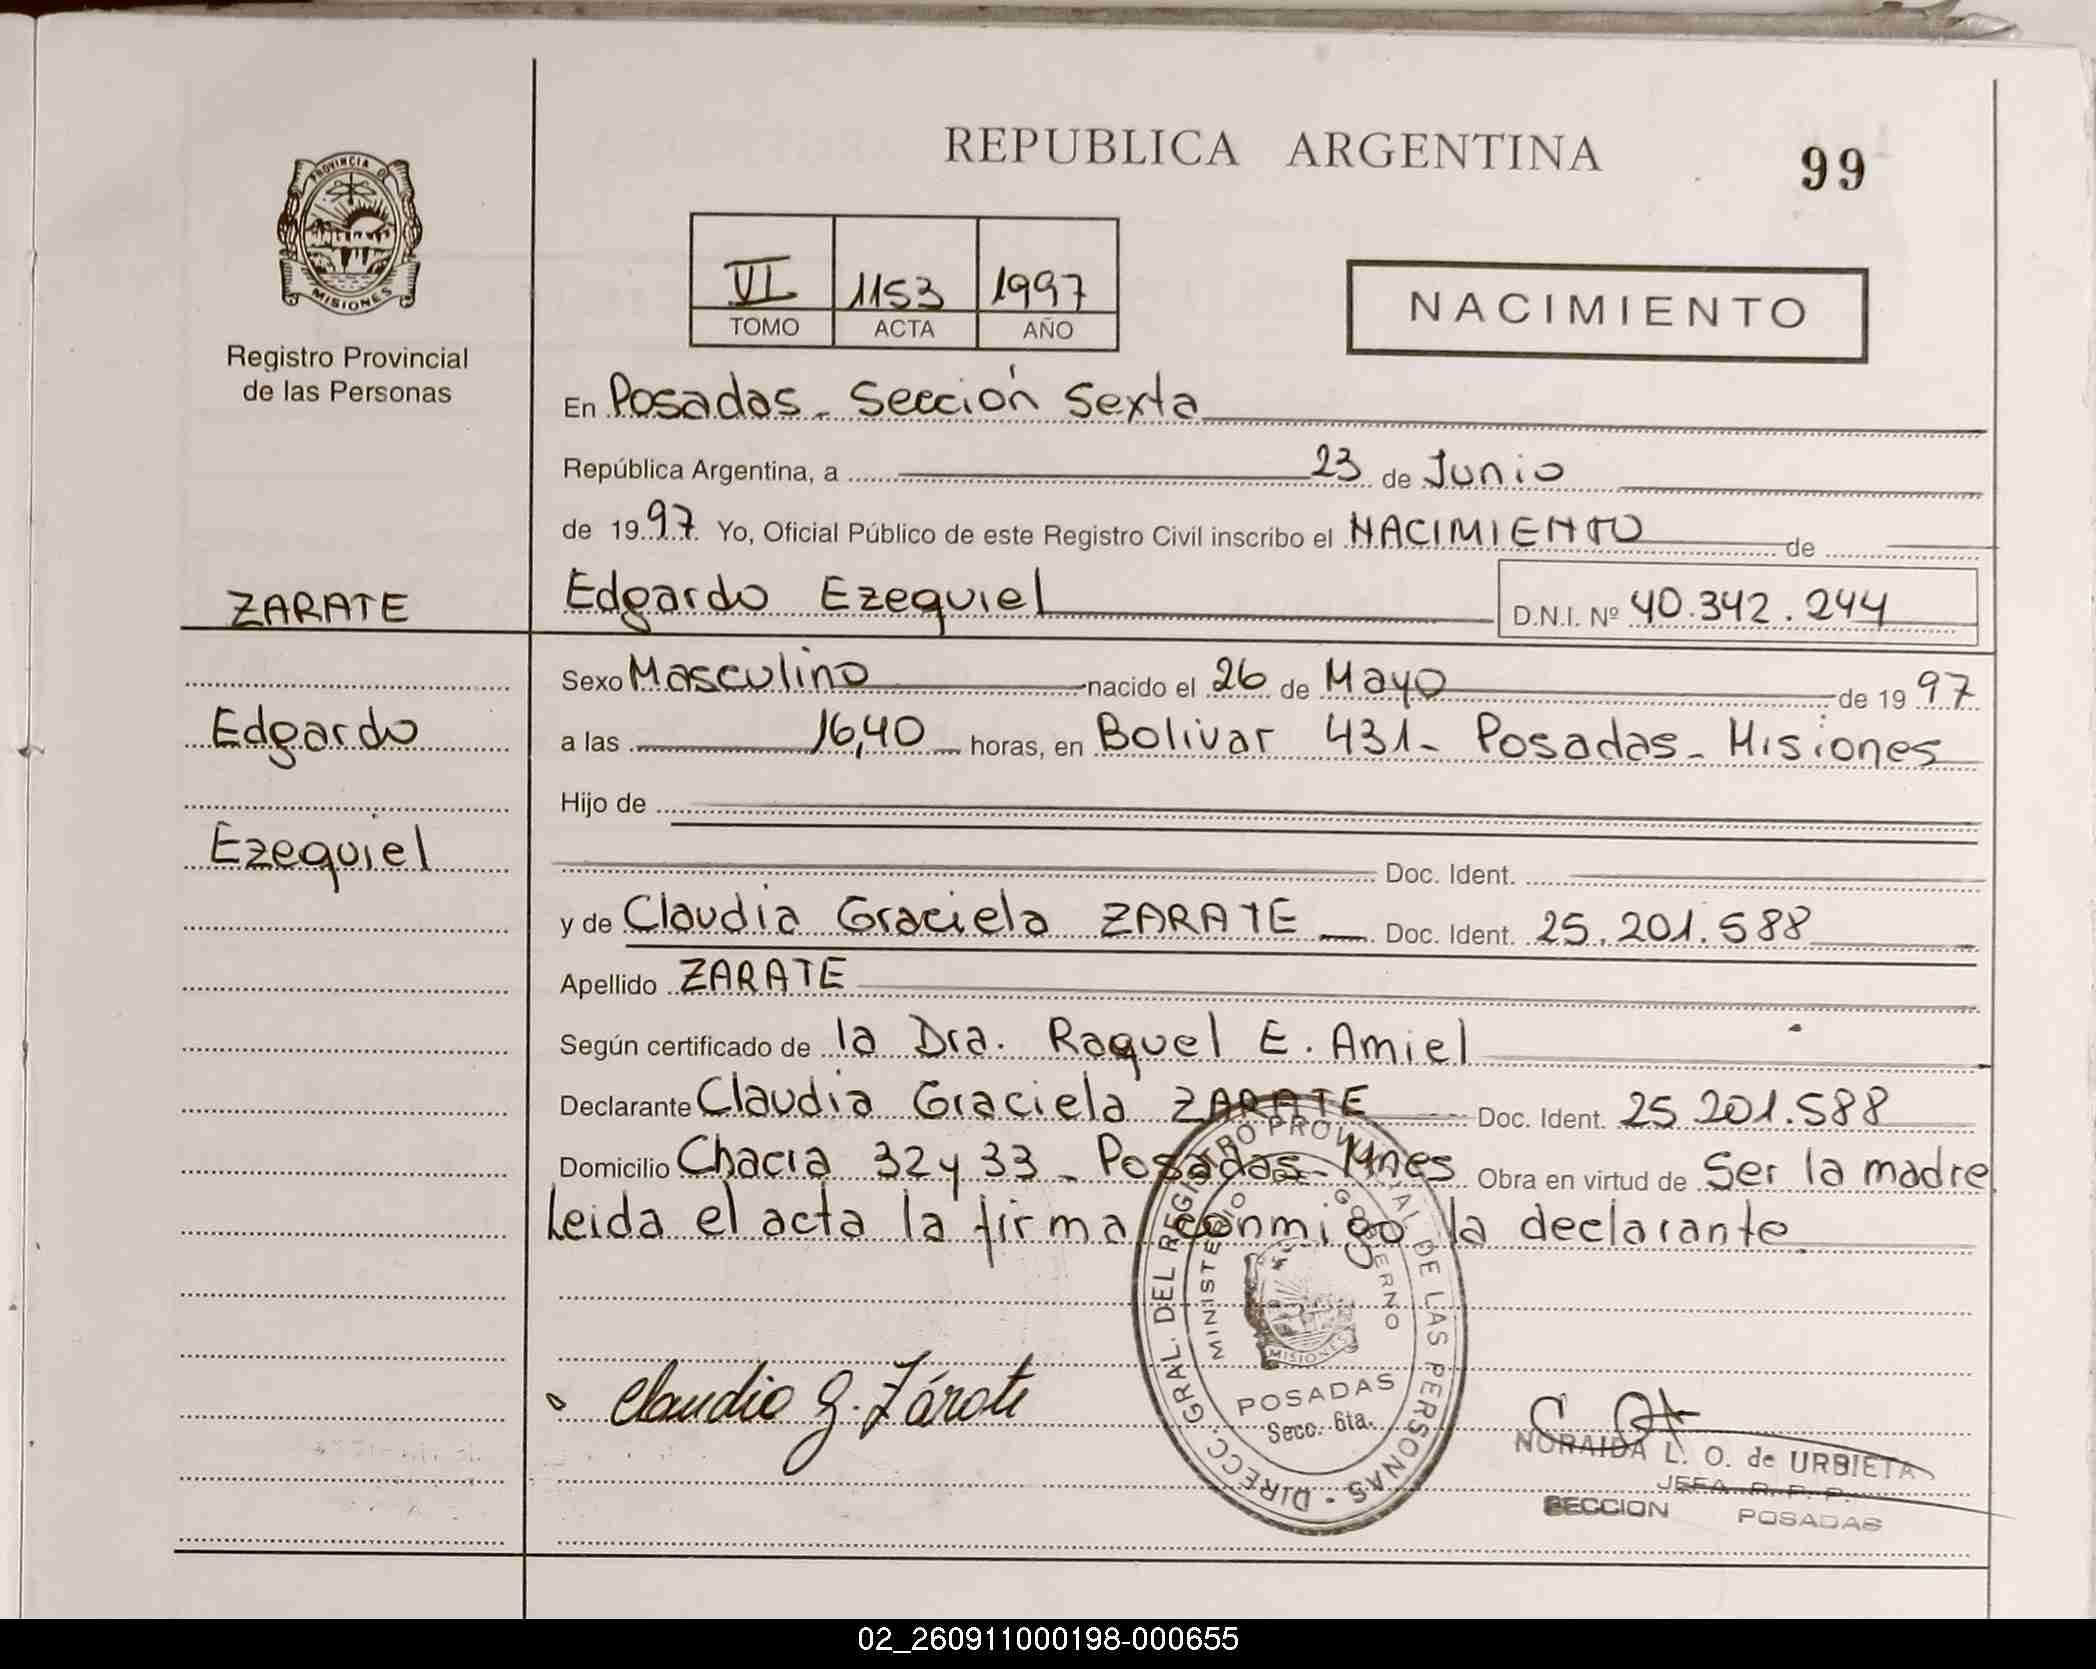 REPUBLICA ARGENTINA
99
PROVINCIA DE
MISIONES
Registro Provincial
de las Personas
VI 1153 1997
TOMO ACTA AÑO
NACIMIENTO
En Posadas - Sección Sexta
República Argentina, a 23 de Junio
de 1997 Yo, Oficial Público de este Registro Civil inscribo el NACIMIENTO de
ZARATE
Edgardo Ezequiel D.N.I. Nº 40.342.244
Sexo Masculino nacido el 26 de Mayo de 1997
Edgardo
a las 16,40 horas, en Bolivar 431 - Posadas - Misiones
Hijo de
Ezequiel
Doc. Ident.
y de Claudia Graciela ZARATE Doc. Ident. 25.201.588
Apellido ZARATE
Según certificado de la Dra. Raquel E. Amiel
Declarante Claudia Graciela ZARATE Doc. Ident. 25.201.588
Domicilio Chacra 32 y 33 - Posadas - Mnes Obra en virtud de Ser la madre
Leida el acta la firma conmigo la declarante
DIRECC. GRAL. DEL REGISTRO PROVINCIAL DE LAS PERSONAS -
MINISTERIO DE GOBIERNO
MISIONES
POSADAS
Secc. 6ta.
Claudia G. Zárate
NORAIDA L. O. de URBIETA
JEFA R. P. P.
SECCION POSADAS
02_260911000198-000655